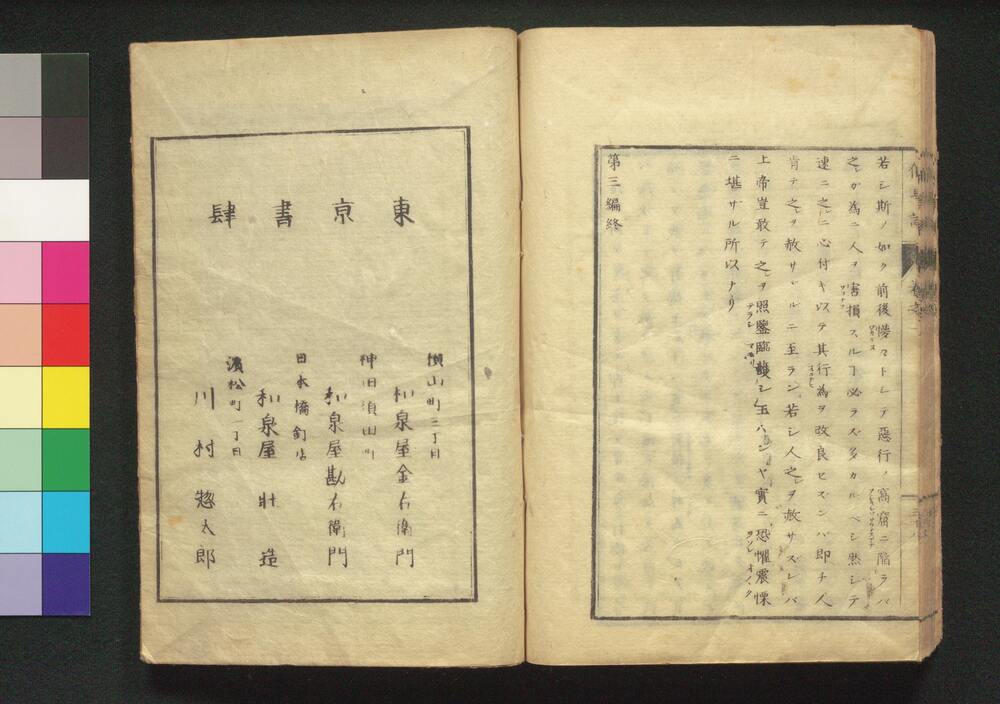 若シ斯ノ如ク前後慘々トシテ惡行ノ窩窟ニ陷ラバ
之ガ為ニ人ヲ害損スルヿ必ラズ多カルベシ然シテ
速ニ之ニ心付キ以テ其行為ヲ改良セズンバ即チ人
肯テ之ヲ赦サヾルニ至ラン若シ人之ヲ赦サズレバ
上帝豈敢テ之ヲ照鑒臨護シ玉ハンヤ實ニ恐懼震慄
ニ堪サル所以ナリ
第三編終
東京書肆
横山町三丁目
和泉屋金右衛門
神田須田町
和泉屋勘右衛門
日本橋釘店
和泉屋壯造
濱松町一丁目
川村惣太郎